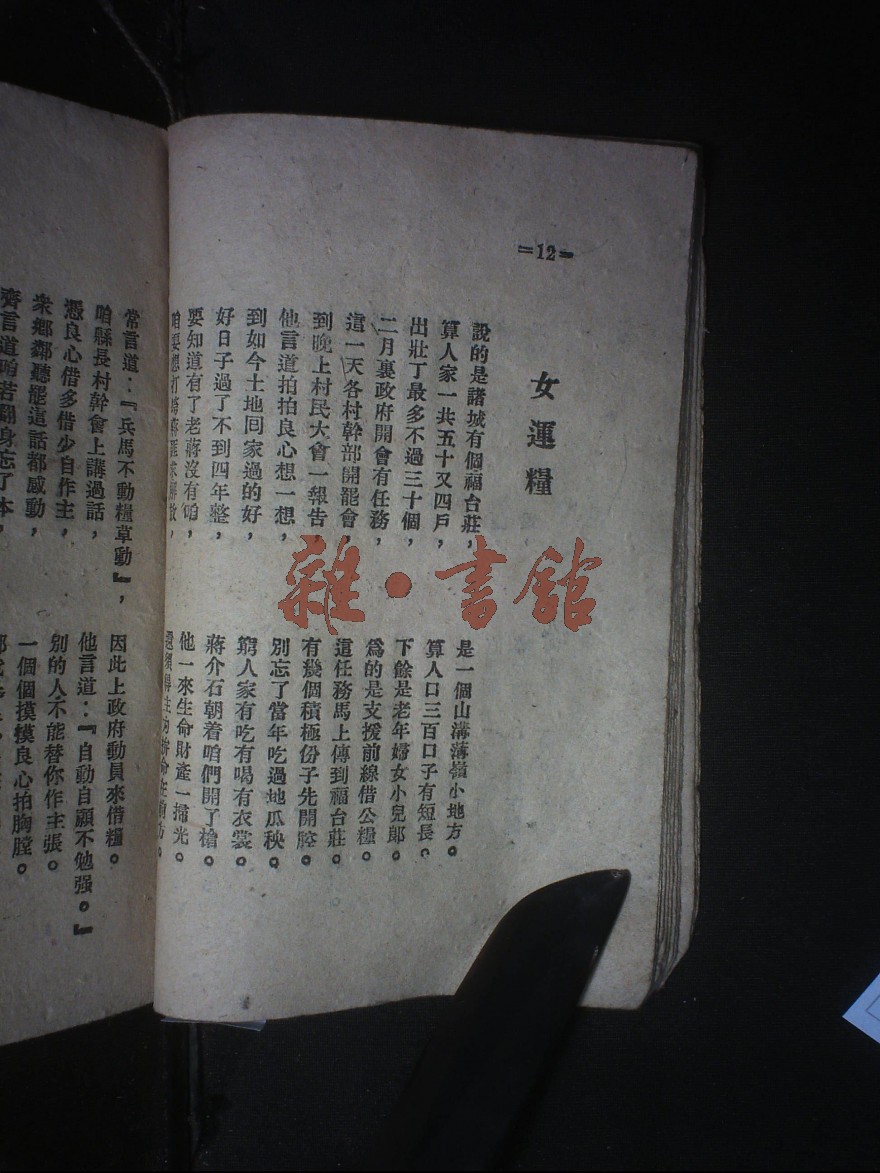 =12=
女運糧
說的是諸城有個福台莊，
是一個山溝落嶺小地方。
算人家一共五十又四戶，
算人口三百口子有短長。
出壯丁最多不過三十個，
下餘是老年婦女小兒郎。
二月裏政府開會有任務，
爲的是支援前線借公糧。
這一天各村幹部開罷會，
這任務馬上傳到福台莊。
到晚上村民大會一報告，
有幾個積極份子先開腔。
他言道拍拍良心想一想，
別忘了當年吃過地瓜秧。
到如今土地回家過的好，
窮人家有吃有喝有衣裳。
好日子過了不到四年整，
蔣介石朝着咱們開了槍。
要知道有了老蔣沒有咱，
他一來生命財產一掃光。
咱要想打垮蔣匪求解放，
常言道：『兵馬不動糧草動』，
因此上政府動員來借糧。
咱縣長村幹會上講過話，
他言道：『自動自願不勉强。』
憑良心借多借少自作主，
別的人不能替你作主張。
衆鄉鄰聽罷這話都感動，
一個個摸摸良心拍胸膛。
齊言道咱若翻身忘了本，
雜·書館